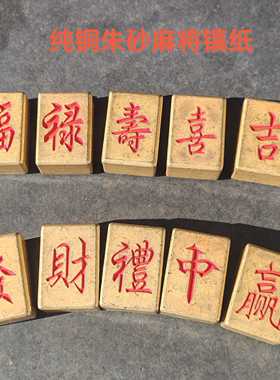 纯铜朱砂麻将镶纸
福 禄 壽 喜 吉
發 財 禮 中 赢